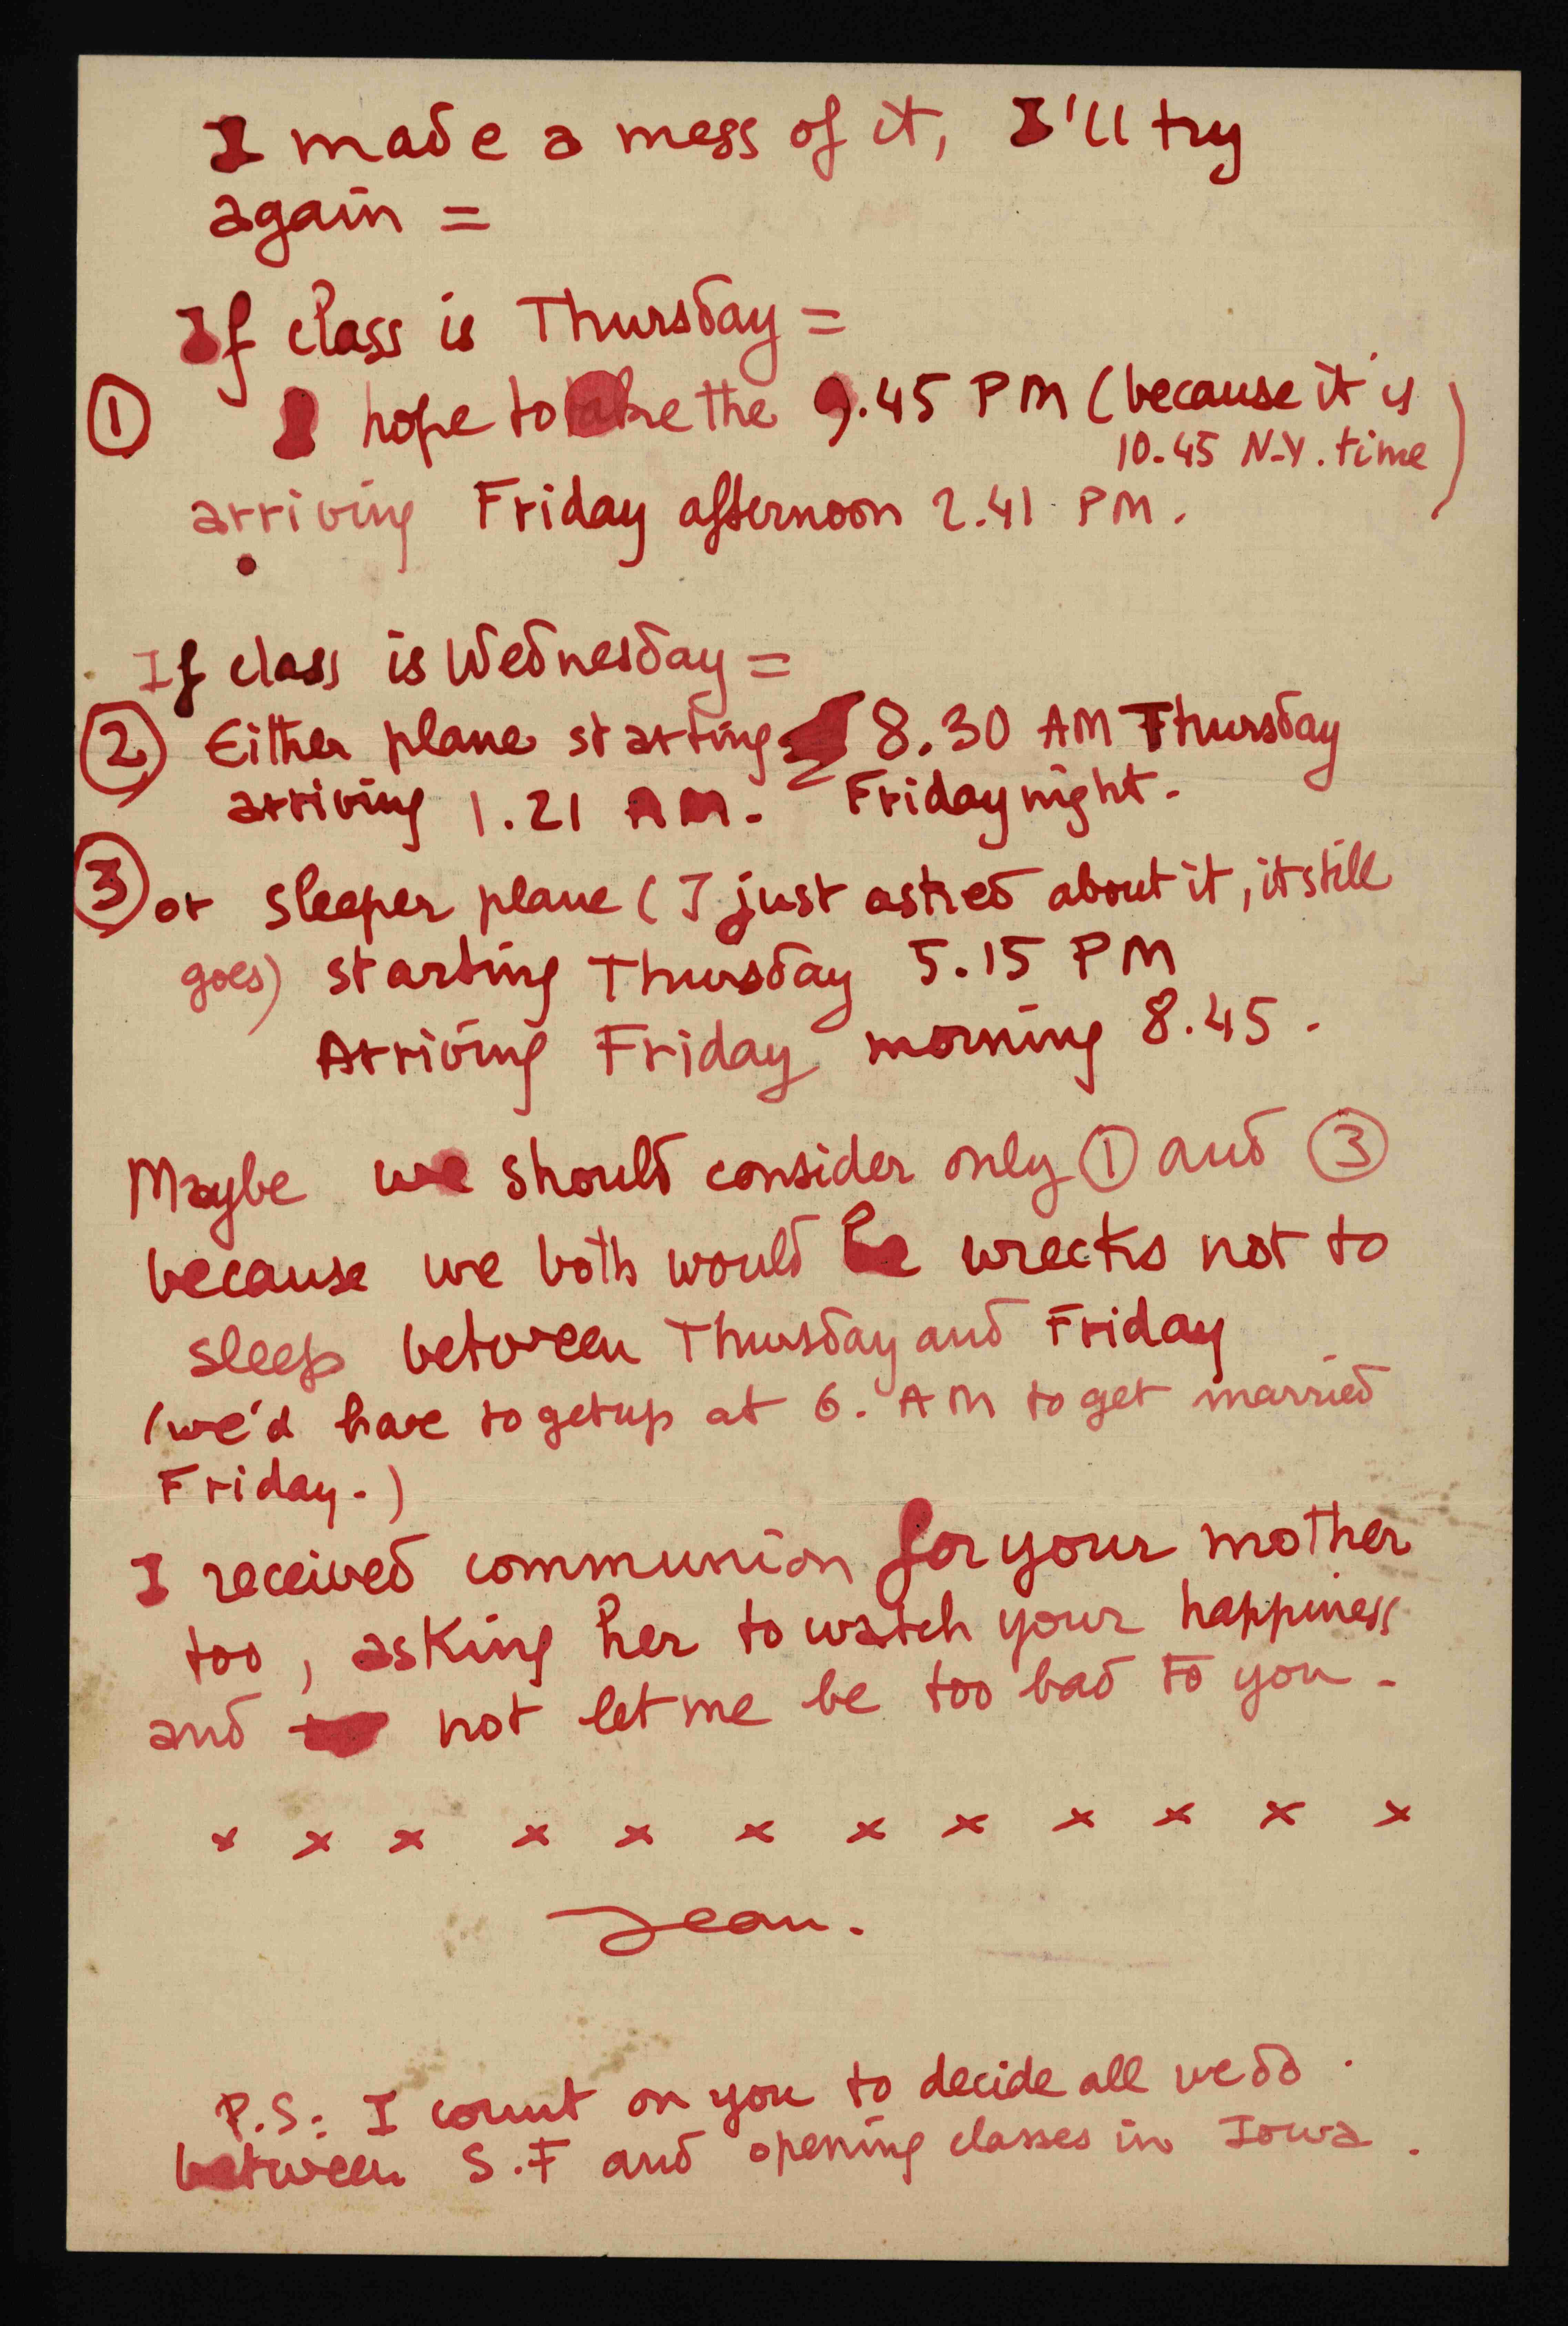 I made a mess of it, I'll try
again =
If class is Thursday =
① I hope to take the 9.45 PM (because it is
10.45 N.Y. time)
arriving Friday afternoon 2.41 PM.
If class is Wednesday =
② Either plane starting 8.30 AM Thursday
arriving 1.21 AM. Friday night.
③ or sleeper plane (I just asked about it, it still
goes) starting Thursday 5.15 PM
Arriving Friday morning 8.45.
Maybe we should consider only ① and ③
because we both would be wrecks not to
sleep between Thursday and Friday
(we'd have to get up at 6. AM to get married
Friday.)
I received communion for your mother
too, asking her to watch your happiness
and not let me be too bad to you.
x x x x x x x x x x x x
Jean.
P.S: I count on you to decide all we do
between S.F and opening classes in Iowa.